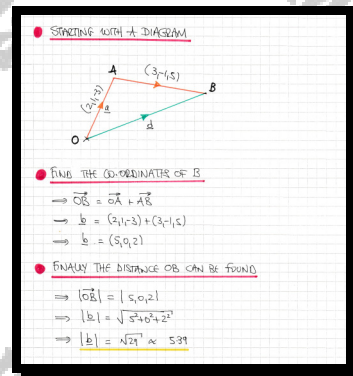 STARTING WITH A DIAGRAM
A
(3,-1,5)
B
(2,1,-3)
a
d
O
FIND THE CO-ORDINATES OF B
⇒ OB = OA + AB
⇒ b = (2,1,-3)+(3,-1,5)
⇒ b = (5,0,2)
FINALLY THE DISTANCE OB CAN BE FOUND
⇒ |OB| = |5,0,2|
⇒ |b| = √5²+0²+2²
⇒ |b| = √29 ≈ 5.39